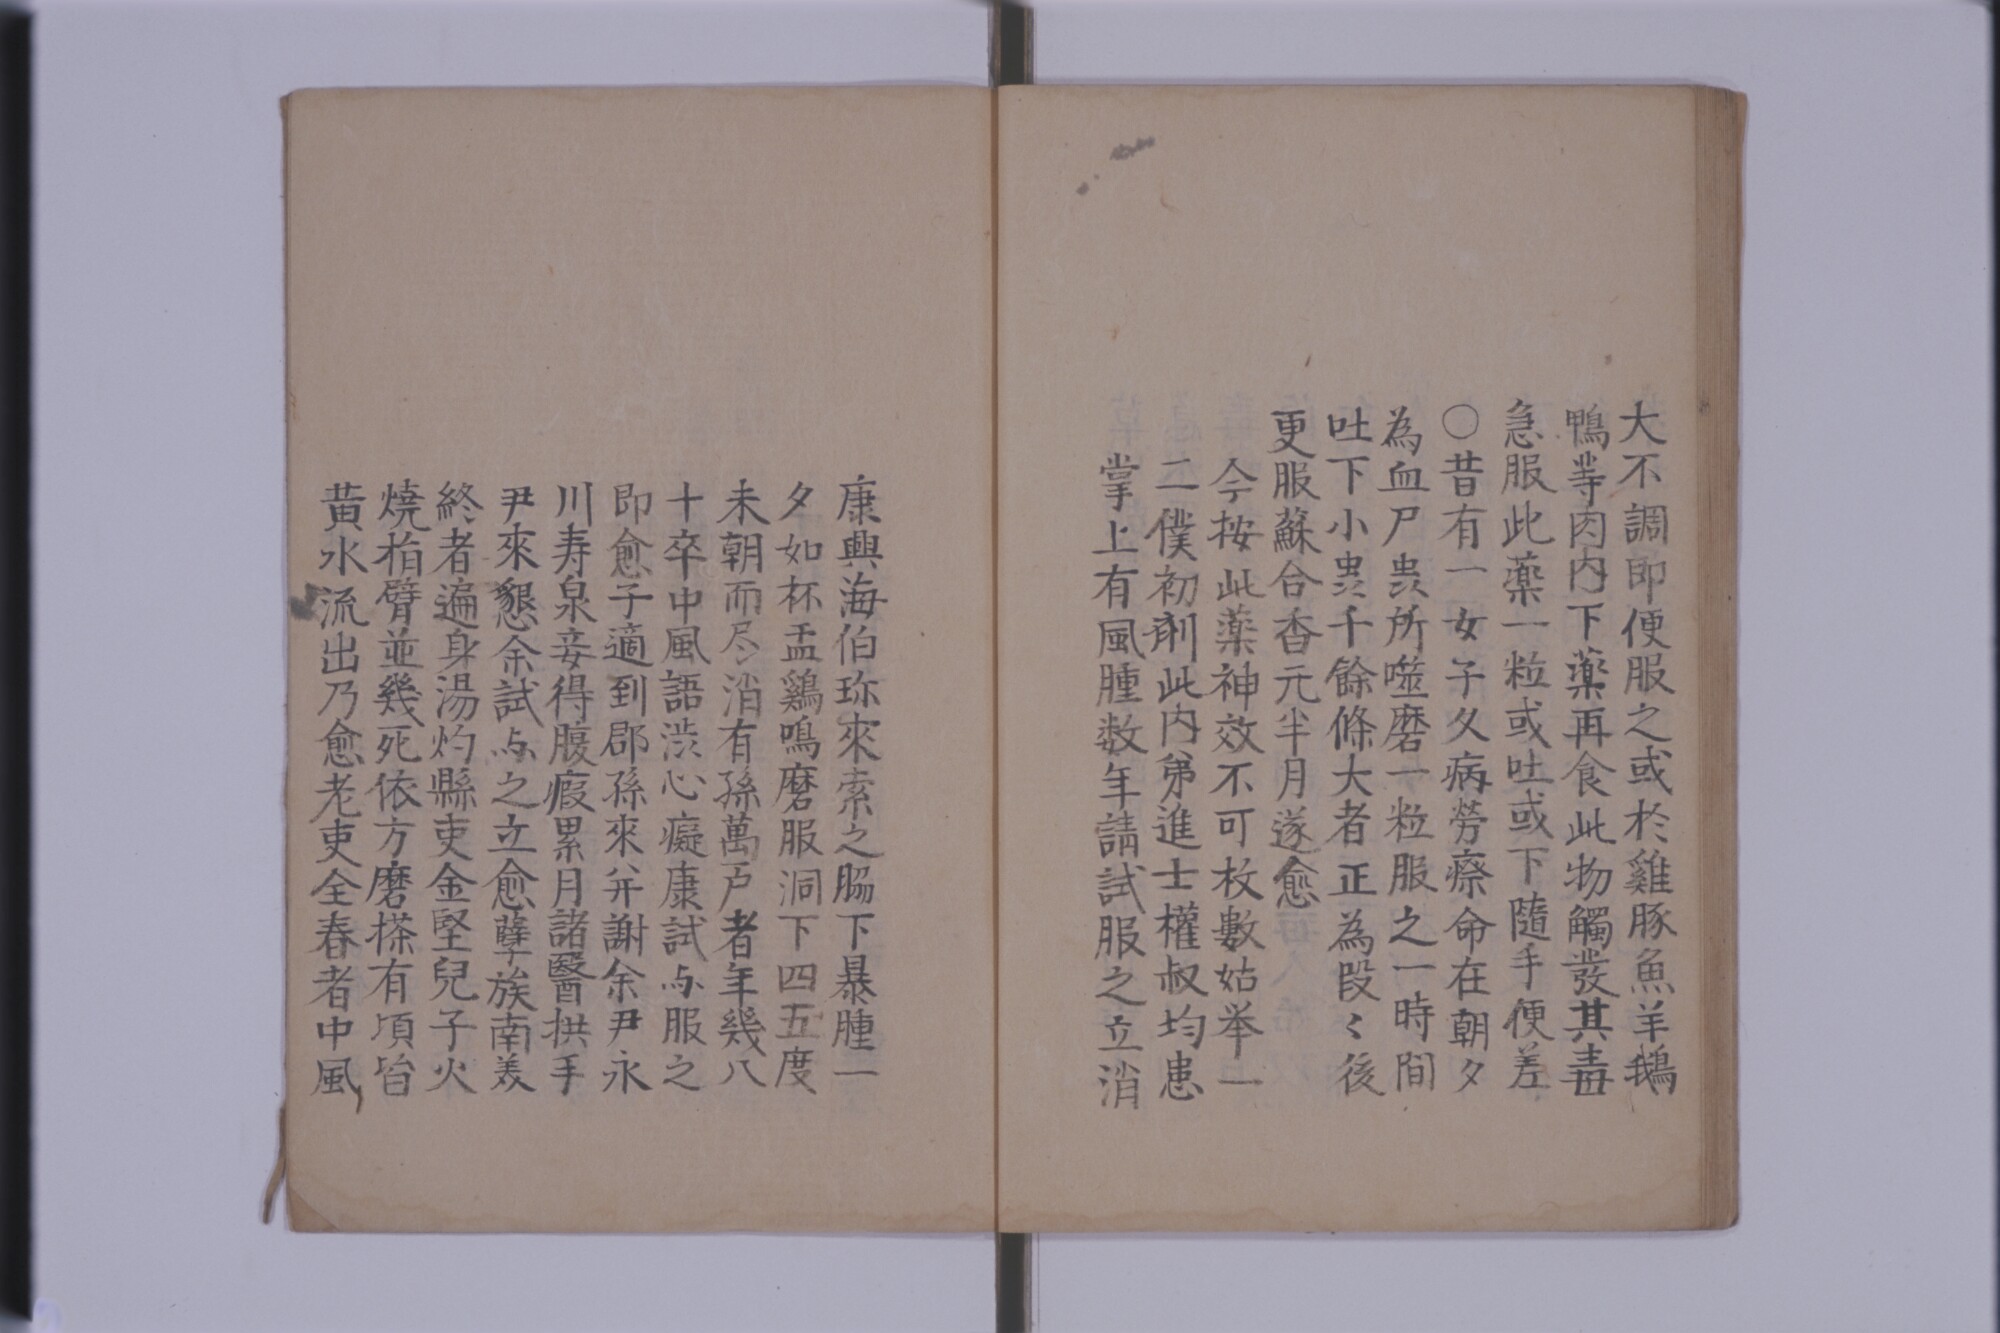 大不調即便服之或於雞豚魚羊鵝
鴨等肉內下藥再食此物觸發其毒
急服此藥一粒或吐或下隨手便差
〇昔有一女子久病勞瘵命在朝夕
為血尸虫所噬磨一粒服之一時間
吐下小虫千餘條大者正為段〻後
更服蘇合香元半月遂愈
今按此藥神效不可枚數姑举一
二僕初剤此内弟進士權叔均患
掌上有風腫数年請試服之立消
康興海伯珎來索之膓下暴腫一
夕如杯盂鷄鳴磨服洞下四五度
未朝而尽消有孫萬戶者年幾八
十卒中風語渋心癡康試与服之
即愈子適到郡孫來并謝余尹永
川寿泉妾得腹瘕累月諸醫拱手
尹來懇余試与之立愈孽族南羙
終者遍身湯灼縣吏金堅兒子火
燒栢臂並幾死依方磨搽有頃皆
黄水流出乃愈老吏全春者中風